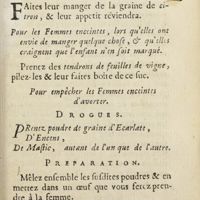 Faites leur manger de la graine de ci-
tron, & leur appetit réviendra.
Pour les Femmes enceintes, lors qu'elles ont
envie de manger quelque chose, & qu'elles
craignent que l'enfant n'en soit marqué.
Prenez des tendrons de feuilles de vigne,
pilez-les & leur faites boire de ce suc.
Pour empêcher les Femmes enceintes
d'avorter.
DROGUES.
PRenez, poudre de graine d'Ecarlate,
D'Encens,
De Mastic, autant de l'un que de l'autre.
PREPARATION.
Mêlez ensemble les susdites poudres & en
mettez dans un œuf que vous ferez pren-
dre à la femme.